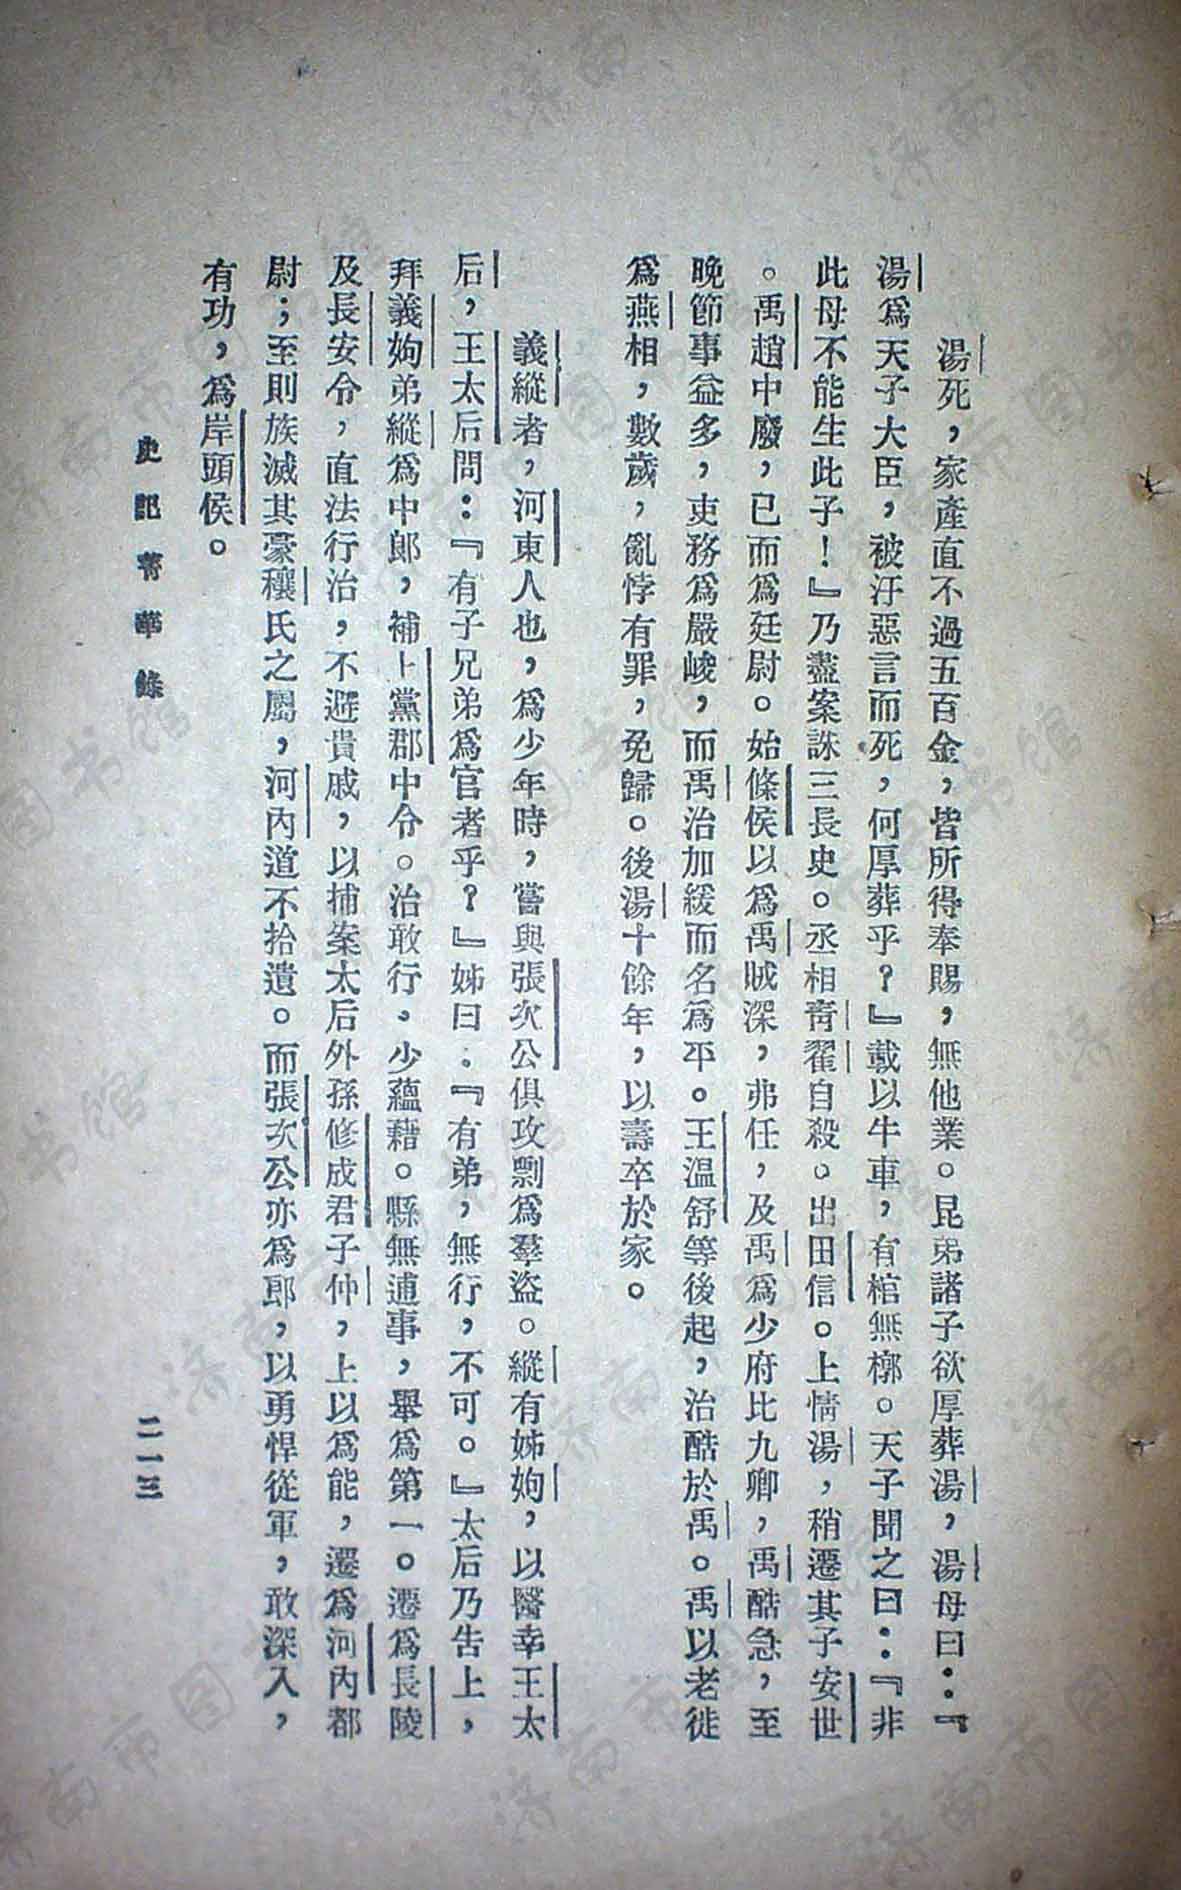 湯死，家產直不過五百金，皆所得奉賜，無他業。昆弟諸子欲厚葬湯，湯母曰：『
湯爲天子大臣，被汙惡言而死，何厚葬乎？』載以牛車，有棺無槨。天子聞之曰：『非
此母不能生此子！』乃盡案誅三長史。丞相靑翟自殺。出田信。上惜湯，稍遷其子安世
。禹趙中廢，已而爲廷尉。始條侯以爲禹賊深，弗任，及禹爲少府比九卿，禹酷急，至
晚節事益多，吏務爲嚴峻，而禹治加緩而名爲平。王溫舒等後起，治酷於禹。禹以老徙
爲燕相，數歲，亂悖有罪，免歸。後湯十餘年，以壽卒於家。
義縱者，河東人也，爲少年時，嘗與張次公俱攻剽爲羣盜。縱有姊姁，以醫幸王太
后，王太后問：『有子兄弟爲官者乎？』姊曰：『有弟，無行，不可。』太后乃告上，
拜義姁弟縱爲中郎，補上黨郡中令。治敢行，少蘊藉。縣無逋事，舉爲第一。遷爲長陵
及長安令，直法行治，不避貴戚，以捕案太后外孫修成君子仲，上以爲能，遷爲河內都
尉；至則族滅其豪穰氏之屬，河內道不拾遺。而張次公亦爲郎，以勇悍從軍，敢深入，
有功，爲岸頭侯。
史記菁華錄
二一三
济南市图书馆